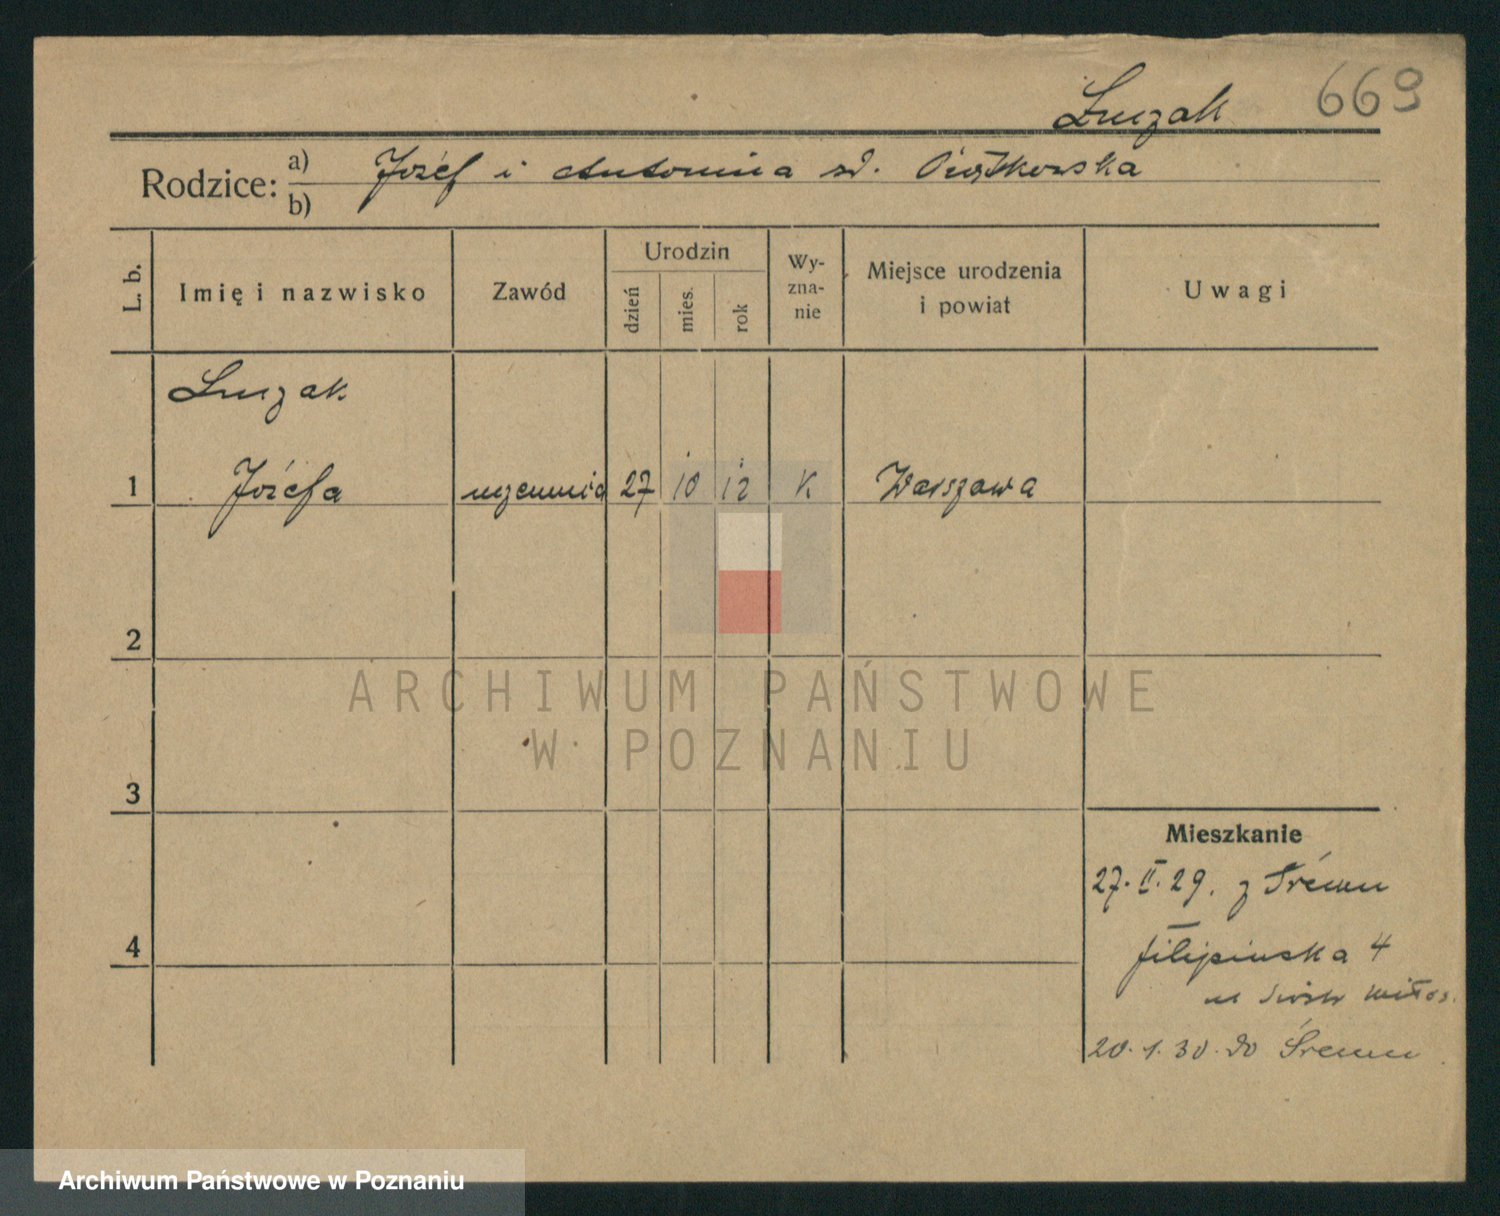 669
Luczak
Rodzice: a) Józef i Antonina sd. Piątkowska
b)
L. b. Imię i nazwisko Zawód Urodzin Wy-zna-nie Miejsce urodzenia i powiat Uwagi
dzień mies. rok
Luczak
1 Józefa uczennica 27 10 12 K Warszawa
2
ARCHIWUM PAŃSTWOWE
W POZNANIU
3
Mieszkanie
27. II. 29. z Śremu
4 filipińska 4
u Sióstr Miłos.
20. 1. 30. do Śremu
Archiwum Państwowe w Poznaniu